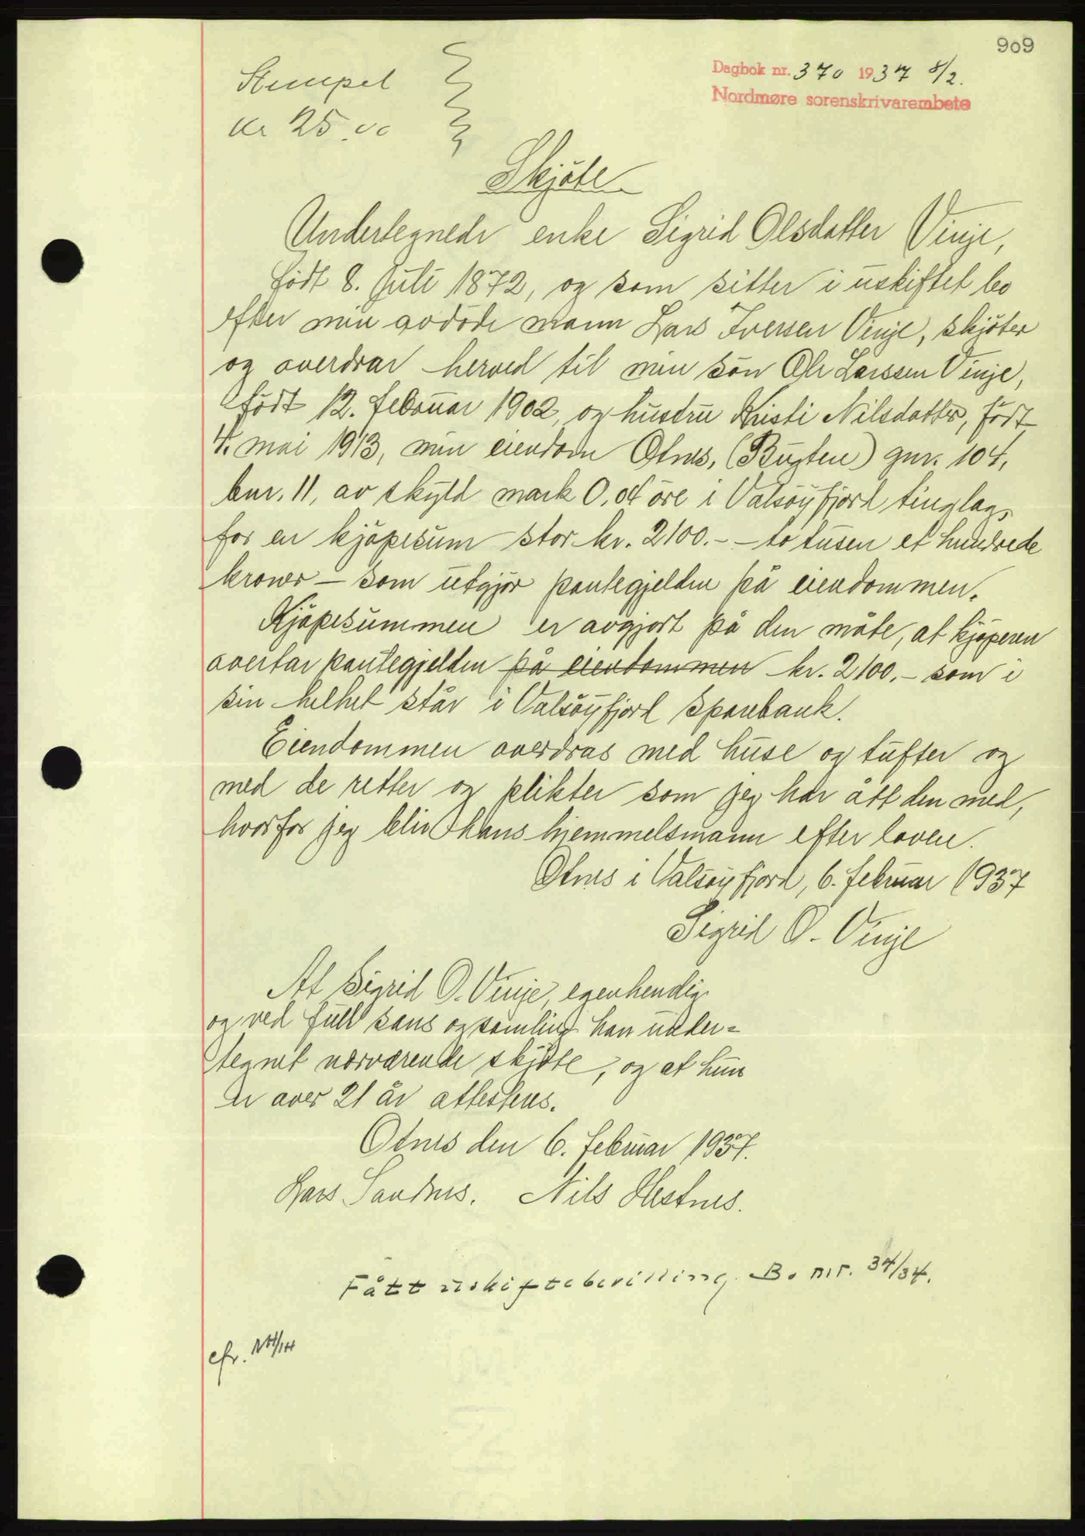 909
Dagbok nr. 370 1937 8/2.
Nordmøre sorenskrivarembete
Stempel
kr 25.00
Skjöte
Undertegnede enke Sigrid Olsdatter Vinje,
født 8. juli 1872, og som sitter i uskiftet bo
efter min avdöde mann Lars Iversen Vinje, skjöter
og overdrar herved til min sön Ole Larssen Vinje,
födt 12. februar 1902, og hustru Kristi Nilsdatter, födt
4. mai 1913, min eiendom Otnes, (Bugten) gnr. 104,
bnr. 11, av skyld mark 0.04 öre i Valsöyfjord tinglag,
for en kjöpesum stor kr. 2100.- - to tusen et hundrede
kroner - som utgjör pantegjelden på eiendommen.
Kjöpesummen er avgjort på den måte, at kjöperen
overtar pantegjelden på eiendommen kr. 2100.- som i
sin helhet står i Valsöyfjord Sparebank.
Eiendommen overdras med huse og tufter og
med de retter og plikter som jeg har ått den med,
hvorfor jeg blir hans hjemmelsmann efter loven.
Otnes i Valsöyfjord, 6. februar 1937
Sigrid O. Vinje
At Sigrid O. Vinje, egenhendig
og ved full sans og samling har under=
tegnet nærværende skjöte, og at hun
er over 21 år attesteres.
Otnes den 6. februar 1937.
Lars Sandnes. Nils Hestnes.
Fått uskiftebevilling Bo nr. 34/34.
cfr.